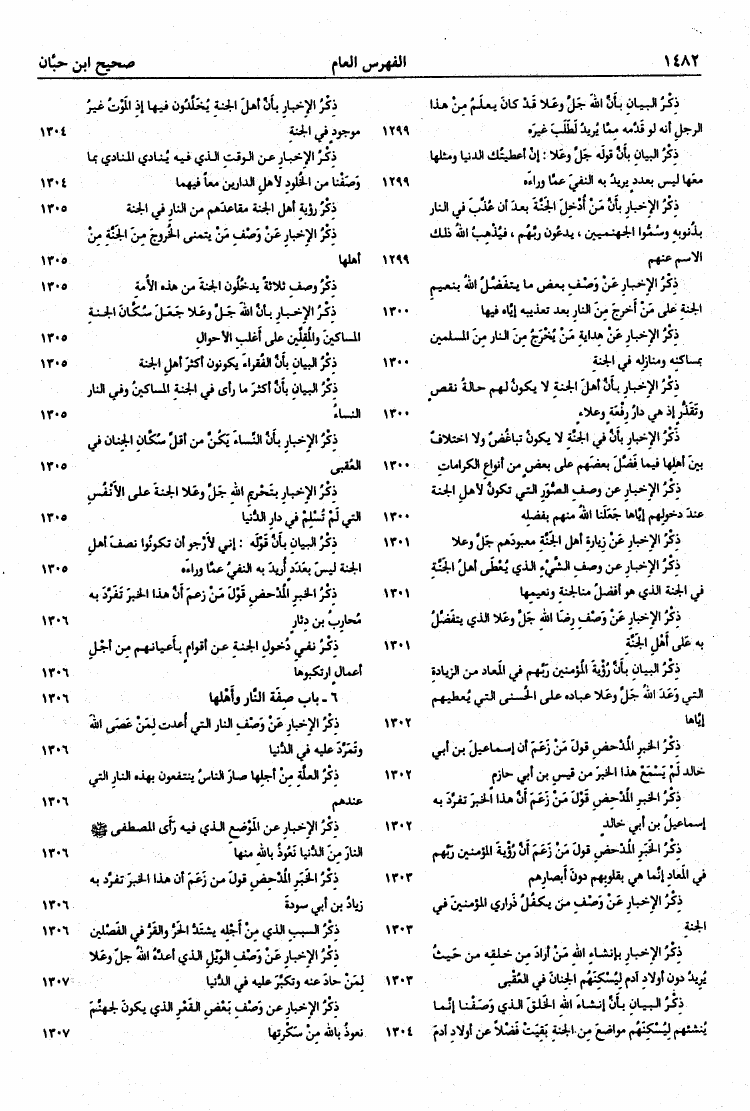 ١٤٨٢ الفهرس العام صحيح ابن حبَّان
ذِكْرُ البيانِ بأنَّ اللهَ جَلَّ وعَلا قَدْ كانَ يعلَمُ مِنْ هذا
الرجلِ أنه لو قدَّمه مِمَّا يُريدُ لَطَلَبَ غيرَه ١٢٩٩
ذِكْرُ البيان بأنَّ قولَه جَلَّ وعَلا : إنْ أعطيتُك الدنيا ومثلها
معَها ليس بعددٍ يريدُ به النفيَ عمَّا وراءَه ١٢٩٩
ذِكْرُ الإخبارِ بأنَّ مَنْ أُدْخِلَ الجَنَّةَ بعدَ أن عُذِّبَ في النار
بذُنوبِه وسُمُّوا الجهنميين ، يدعُون ربَّهُم ، فيُذْهِبُ اللهُ ذلك
الاسم عنهم ١٢٩٩
ذِكْرُ الإخبارِ عَنْ وَصْفِ بعض ما يتفَضَّلُ اللهُ بنعيمِ
الجنةِ على مَنْ أخرجَ مِنَ النار بعد تعذيبِه إيَّاه فيها ١٣٠٠
ذِكْرُ الإخبارِ عَنْ هِدايةِ مَنْ يُخْرَجُ مِنَ النار مِنَ المسلمين
بمساكنِه ومنازلِه في الجنة ١٣٠٠
ذِكْرُ الإخبارِ بأنَّ أهلَ الجنةِ لا يكونُ لهم حالةُ نقصٍ
وتَقَذُّرٍ إذ هي دارُ رِفْعَةٍ وعلاءٍ ١٣٠٠
ذِكْرُ الإخبارِ بأنَّ في الجنَّةِ لا يكونُ تباغُضٌ ولا اختلافٌ
بينَ أهلِها فيما فَضَّلَ بعضَهم على بعضٍ من أنواعِ الكرامات ١٣٠٠
ذِكْرُ الإخبارِ عن وصفِ الصُّوَرِ التي تكونُ لأهلِ الجنةِ
عند دخولهم إيَّاها جَعَلَنا اللهُ منهم بفضلِه ١٣٠٠
ذِكْرُ الإخبارِ عَنْ زيارةِ أهل الجنَّةِ معبودَهم جَلَّ وعلا ١٣٠١
ذِكْرُ الإخبارِ عن وصفِ الشَّيْءِ الذي يُعْطَى أهلُ الجنَّةِ
في الجنةِ الذي هو أفضلُ مناجنةِ ونعيمها ١٣٠١
ذِكْرُ الإخبارِ عَنْ وَصْفِ رِضَا اللهِ جَلَّ وعَلا الذي يتفَضَّلُ
به عَلى أَهْلِ الجَنَّةِ ١٣٠١
ذِكْرُ البيانِ بأنَّ رُؤْيةَ المُؤْمنين ربَّهم في المَعاد من الزيادةِ
التي وَعَدَ اللهُ جَلَّ وعَلا عبادَه على الحُسنى التي يُعطيهم
إيَّاها ١٣٠٢
ذِكْرُ الخبرِ المُدْحِضِ قولَ مَنْ زَعَمَ أن إسماعيلَ بن أبي
خالد لَمْ يَسْمَعْ هذا الخبرَ من قيسِ بنِ أبي حازم ١٣٠٢
ذِكْرُ الخبرِ المُدْحِضِ قَوْلَ مَنْ زَعَمَ أنَّ هذا الخبرَ تفرَّدَ به
إسماعيلُ بن أبي خالدٍ ١٣٠٢
ذِكْرُ الخَبَرِ المُدْحِضِ قولَ مَنْ زَعَمَ أَنَّ رُؤْيةَ المؤمنين ربَّهم
في المَعادِ إنَّما هي بقلوبِهم دونَ أبصارِهم ١٣٠٣
ذِكْرُ الإخبارِ عَنْ وَصْفِ من يكفُلُ ذراري المؤمنين في
الجنةِ ١٣٠٣
ذِكْرُ الإخبارِ بإنشاءِ اللهِ مَنْ أرادَ مِن خلقِه من حيثُ
يُريدُ دون أولادِ آدم ليُسْكِنَهُم الجِنانَ في العُقْبى ١٣٠٣
ذِكْرُ البيان بأنَّ إنشاءَ اللهِ الخَلْقَ الذي وَصَفْنا إنَّما
يُنشئهم ليُسْكِنَهُم مواضعَ مِن الجنةِ بَقِيَتْ فَضْلاً عن أولادِ آدمَ ١٣٠٤
ذِكْرُ الإخبارِ بأنَّ أهلَ الجنةِ يُخَلَّدُون فيها إذِ المَوْتُ غيرُ
موجودٍ في الجنةِ ١٣٠٤
ذِكْرُ الإخبار عن الوقتِ الذي فيه يُنادي المنادي بما
وَصَفْنا من الخُلودِ لأهلِ الدارين معاً فيهما ١٣٠٤
ذِكْرُ رؤيةِ أهلِ الجنة مقاعدَهم من النارِ في الجنة ١٣٠٥
ذِكْرُ الإخبارِ عَنْ وَصْفِ مَنْ يتمنى الخُروجَ مِنَ الجَنَّةِ مِنْ
أهلها ١٣٠٥
ذِكْرُ وصفِ ثلاثةٍ يدخُلُون الجنةَ من هذه الأُمة ١٣٠٥
ذِكْرُ الإخبارِ بأنَّ اللهَ جَلَّ وعَلا جَعَلَ سُكَّانَ الجَنةِ
المساكينَ والمُقِلِّين على أغلبِ الأحوالِ ١٣٠٥
ذِكْرُ البيان بأنَّ الفُقراءَ يكونون أكثرَ أهلِ الجنة ١٣٠٥
ذِكْرُ البيانِ بأنَّ أكثرَ ما رأى في الجنةِ المساكينُ وفي النار
النساءُ ١٣٠٥
ذِكْرُ الإخبارِ بأنَّ النِّساءَ يَكُنَّ من أقلِّ سكَّانِ الجِنان في
العُقبى ١٣٠٥
ذِكْرُ الإخبارِ بتَحْريمِ اللهِ جَلَّ وعَلا الجنةَ على الأَنْفُسِ
التي لَمْ تُسْلِمْ في دارِ الدُّنيا ١٣٠٥
ذِكْرُ البيانِ بأنَّ قَوْلَه : إني لأَرْجو أن تكونُوا نصفَ أهلِ
الجنة ليسَ بعَدَدٍ أُريدَ به النفيُ عمَّا وراءَه ١٣٠٥
ذِكْرُ الخبرِ المُدْحِضِ قَوْلَ مَنْ زعمَ أنَّ هذا الخبرَ تَفَرَّدَ به
مُحاربُ بن دِثارٍ ١٣٠٦
ذِكْرُ نفي دُخولِ الجنةِ عن أقوامٍ بأعيانهم مِن أجْلِ
أعمالٍ ارتكبوها ١٣٠٦
٦ - باب صِفَة النَّارِ وأهْلها ١٣٠٦
ذِكْرُ الإخبارِ عَنْ وَصْفِ النار التي أُعدت لِمَنْ عَصَى اللهَ
وتَمَرَّدَ عليه في الدُّنيا ١٣٠٦
ذِكْرُ العلَّةِ مِنْ أجلِها صارَ الناسُ ينتفعون بهذه النارِ التي
عندهم ١٣٠٦
ذِكْرُ الإخبارِ عن المَوْضعِ الذي فيه رَأَى المصطفى ﷺ
النارَ مِنَ الدُّنيا نَعُوذُ باللهِ منها ١٣٠٦
ذِكْرُ الخَبَرِ المُدْحِضِ قولَ من زَعَمَ أن هذا الخبرَ تفرَّد به
زيادُ بن أبي سودة ١٣٠٦
ذِكْرُ السببِ الذي مِنْ أَجْلِه يشتَدُّ الحَرُّ والقَرُّ في الفَصْلين ١٣٠٦
ذِكْرُ الإخبارِ عَنْ وَصْفِ الوَيْلِ الذي أعدَّهُ اللهُ جلَّ وعَلا
لِمَنْ حادَ عنه وتكبَّرَ عليه في الدُّنيا ١٣٠٧
ذِكْرُ الإخبارِ عن وَصْفِ بَعْضِ القَعْرِ الذي يكونُ لجهنَّمَ
نعوذُ بالله مِنْ سَكْرتِها ١٣٠٧